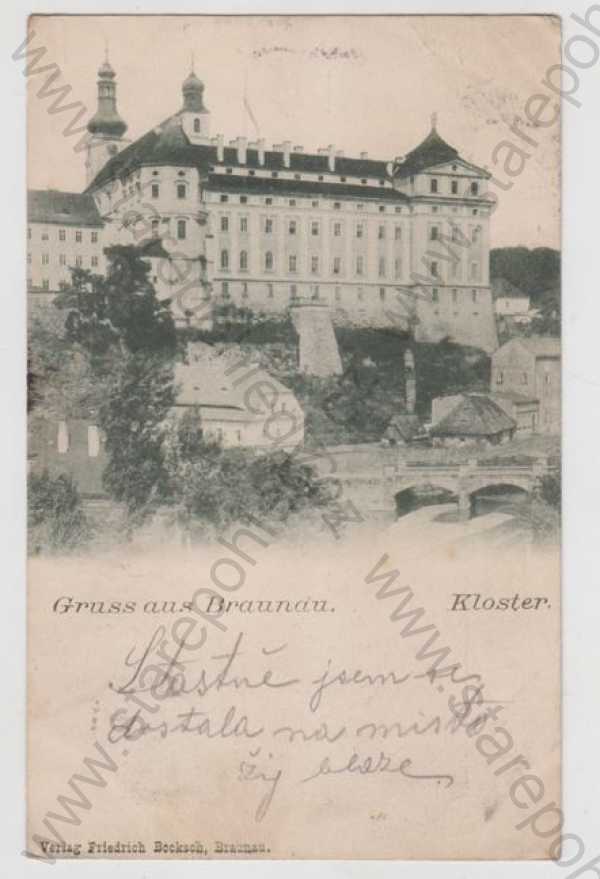 Gruss aus Braunau. Kloster.
Šťastně jsem se
dostala na místo
žij blaze
Verlag Friedrich Bocksch, Braunau.
www.starepohlednice.cz